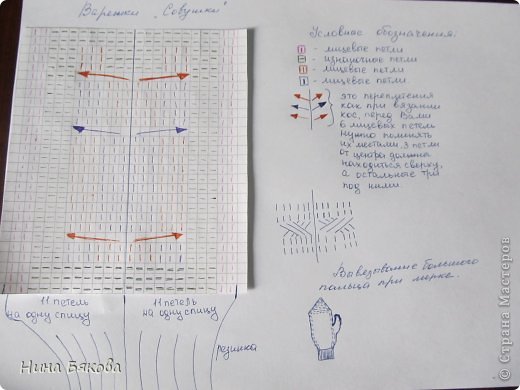 Варежки „Совушки"
Условные обозначения:
- лицевые петли
- изнаночное петли
- лицевые петли
- лицевые петли.
это переплетения
как при вязании
кос, перед Вами
6 лицевых петель
нужно поменять
их местами, 3 петли
от центра должна
находиться сверху,
а остальные три
под ними.
Вывязывание большого
пальца при мерке.
11 петель
на одну спицу
11 петель
на одну спицу
резинка
Нина Бякова
Страна Мастеров